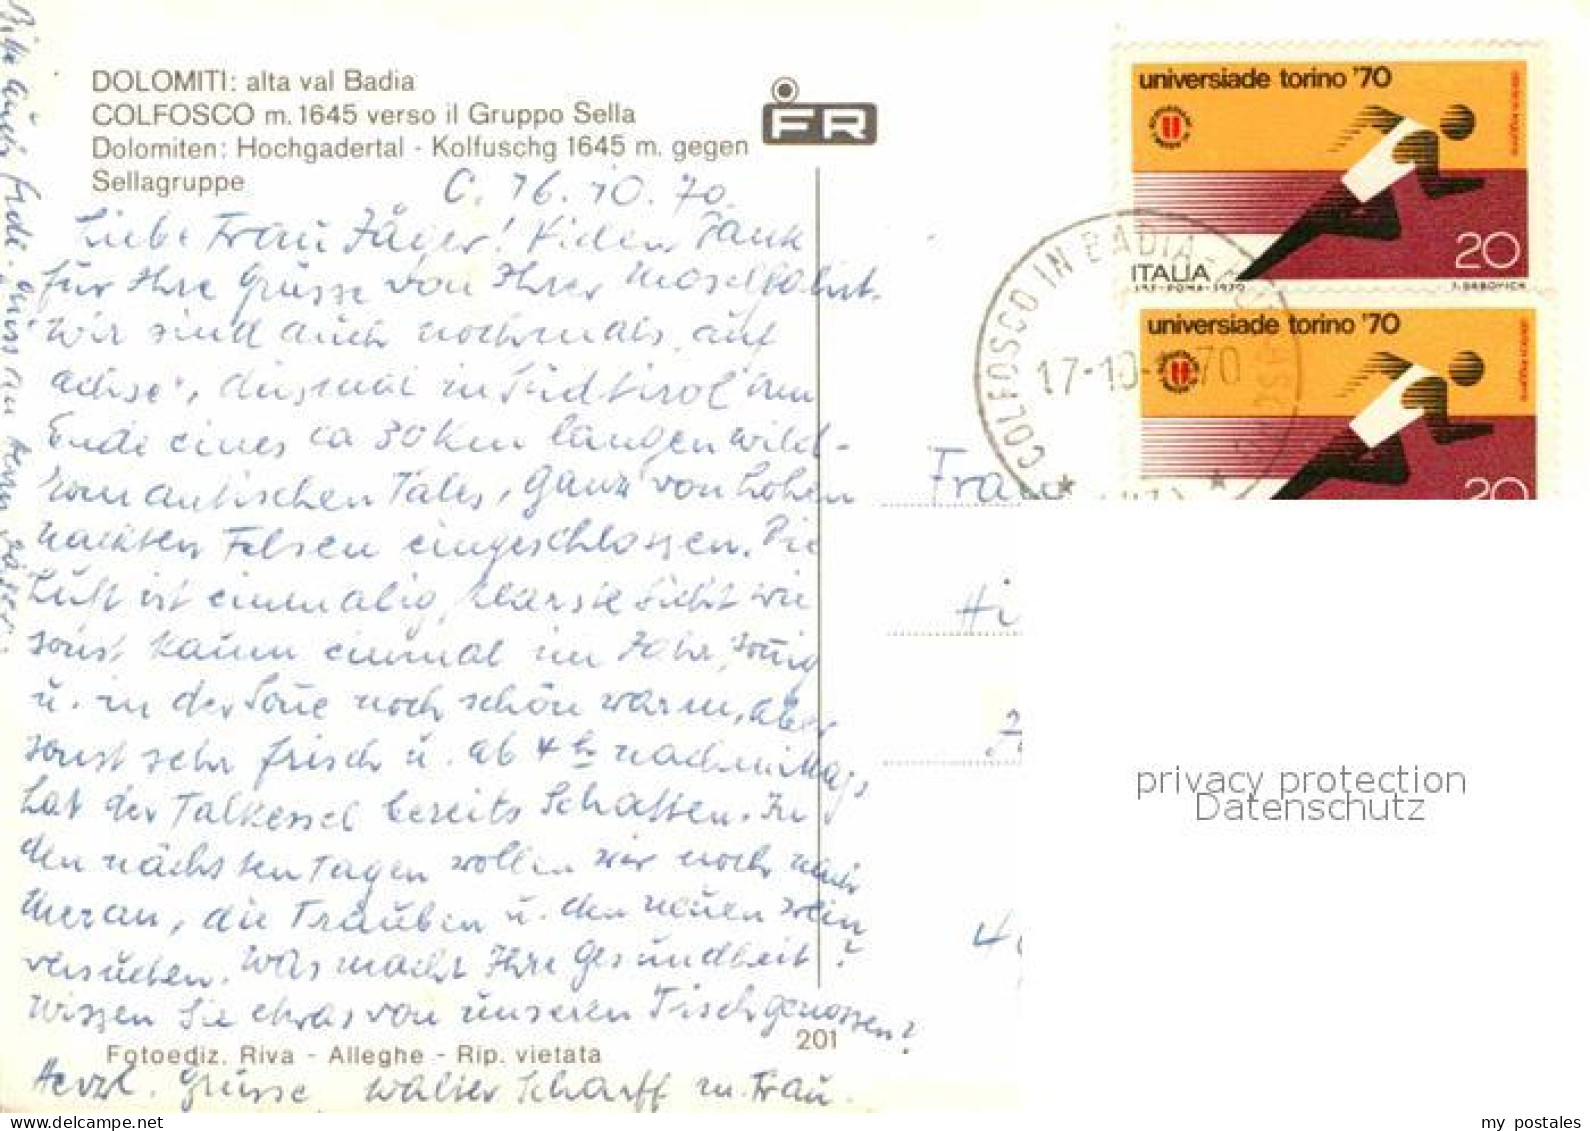 DOLOMITI: alta val Badia
COLFOSCO m. 1645 verso il Gruppo Sella
Dolomiten: Hochgadertal - Kolfuschg 1645 m. gegen
Sellagruppe
FR
C. 16.10.70.
Liebe Frau Jäger! Vielen Dank
für Ihre Grüsse von Ihrer Moselfahrt.
Wir sind auch nochmals „auf
Achse", diesmal in Südtirol am
Ende eines ca 30 Km langen wild-
romantischen Tales, ganz von hohen
nackten Felsen eingeschlossen. Die
Luft ist einmalig, klarste Sicht wie
sonst kaum einmal im Jahr, sonnig
u. in der Sonne noch schön warm, aber
sonst sehr frisch u. ab 4 h nachmittags
hat der Talkessel bereits Schatten. In
den nächsten Tagen wollen wir noch nach
Meran, die Trauben u. den neuen Wein
versuchen. Was macht Ihre Gesundheit?
Wissen Sie etwas von unseren Tischgenossen?
Herzl. Grüsse Walter Scharff u. Frau.
Fotoediz. Riva - Alleghe - Rip. vietata
201
Bitte auch Gruss an Herrn Jäger.
universiade torino '70
ITALIA
20
I.P.S.-ROMA-1970
universiade torino '70
20
COLFOSCO IN BADIA
17-10- 70
Frau
Hi
privacy protection
Datenschutz
my postales